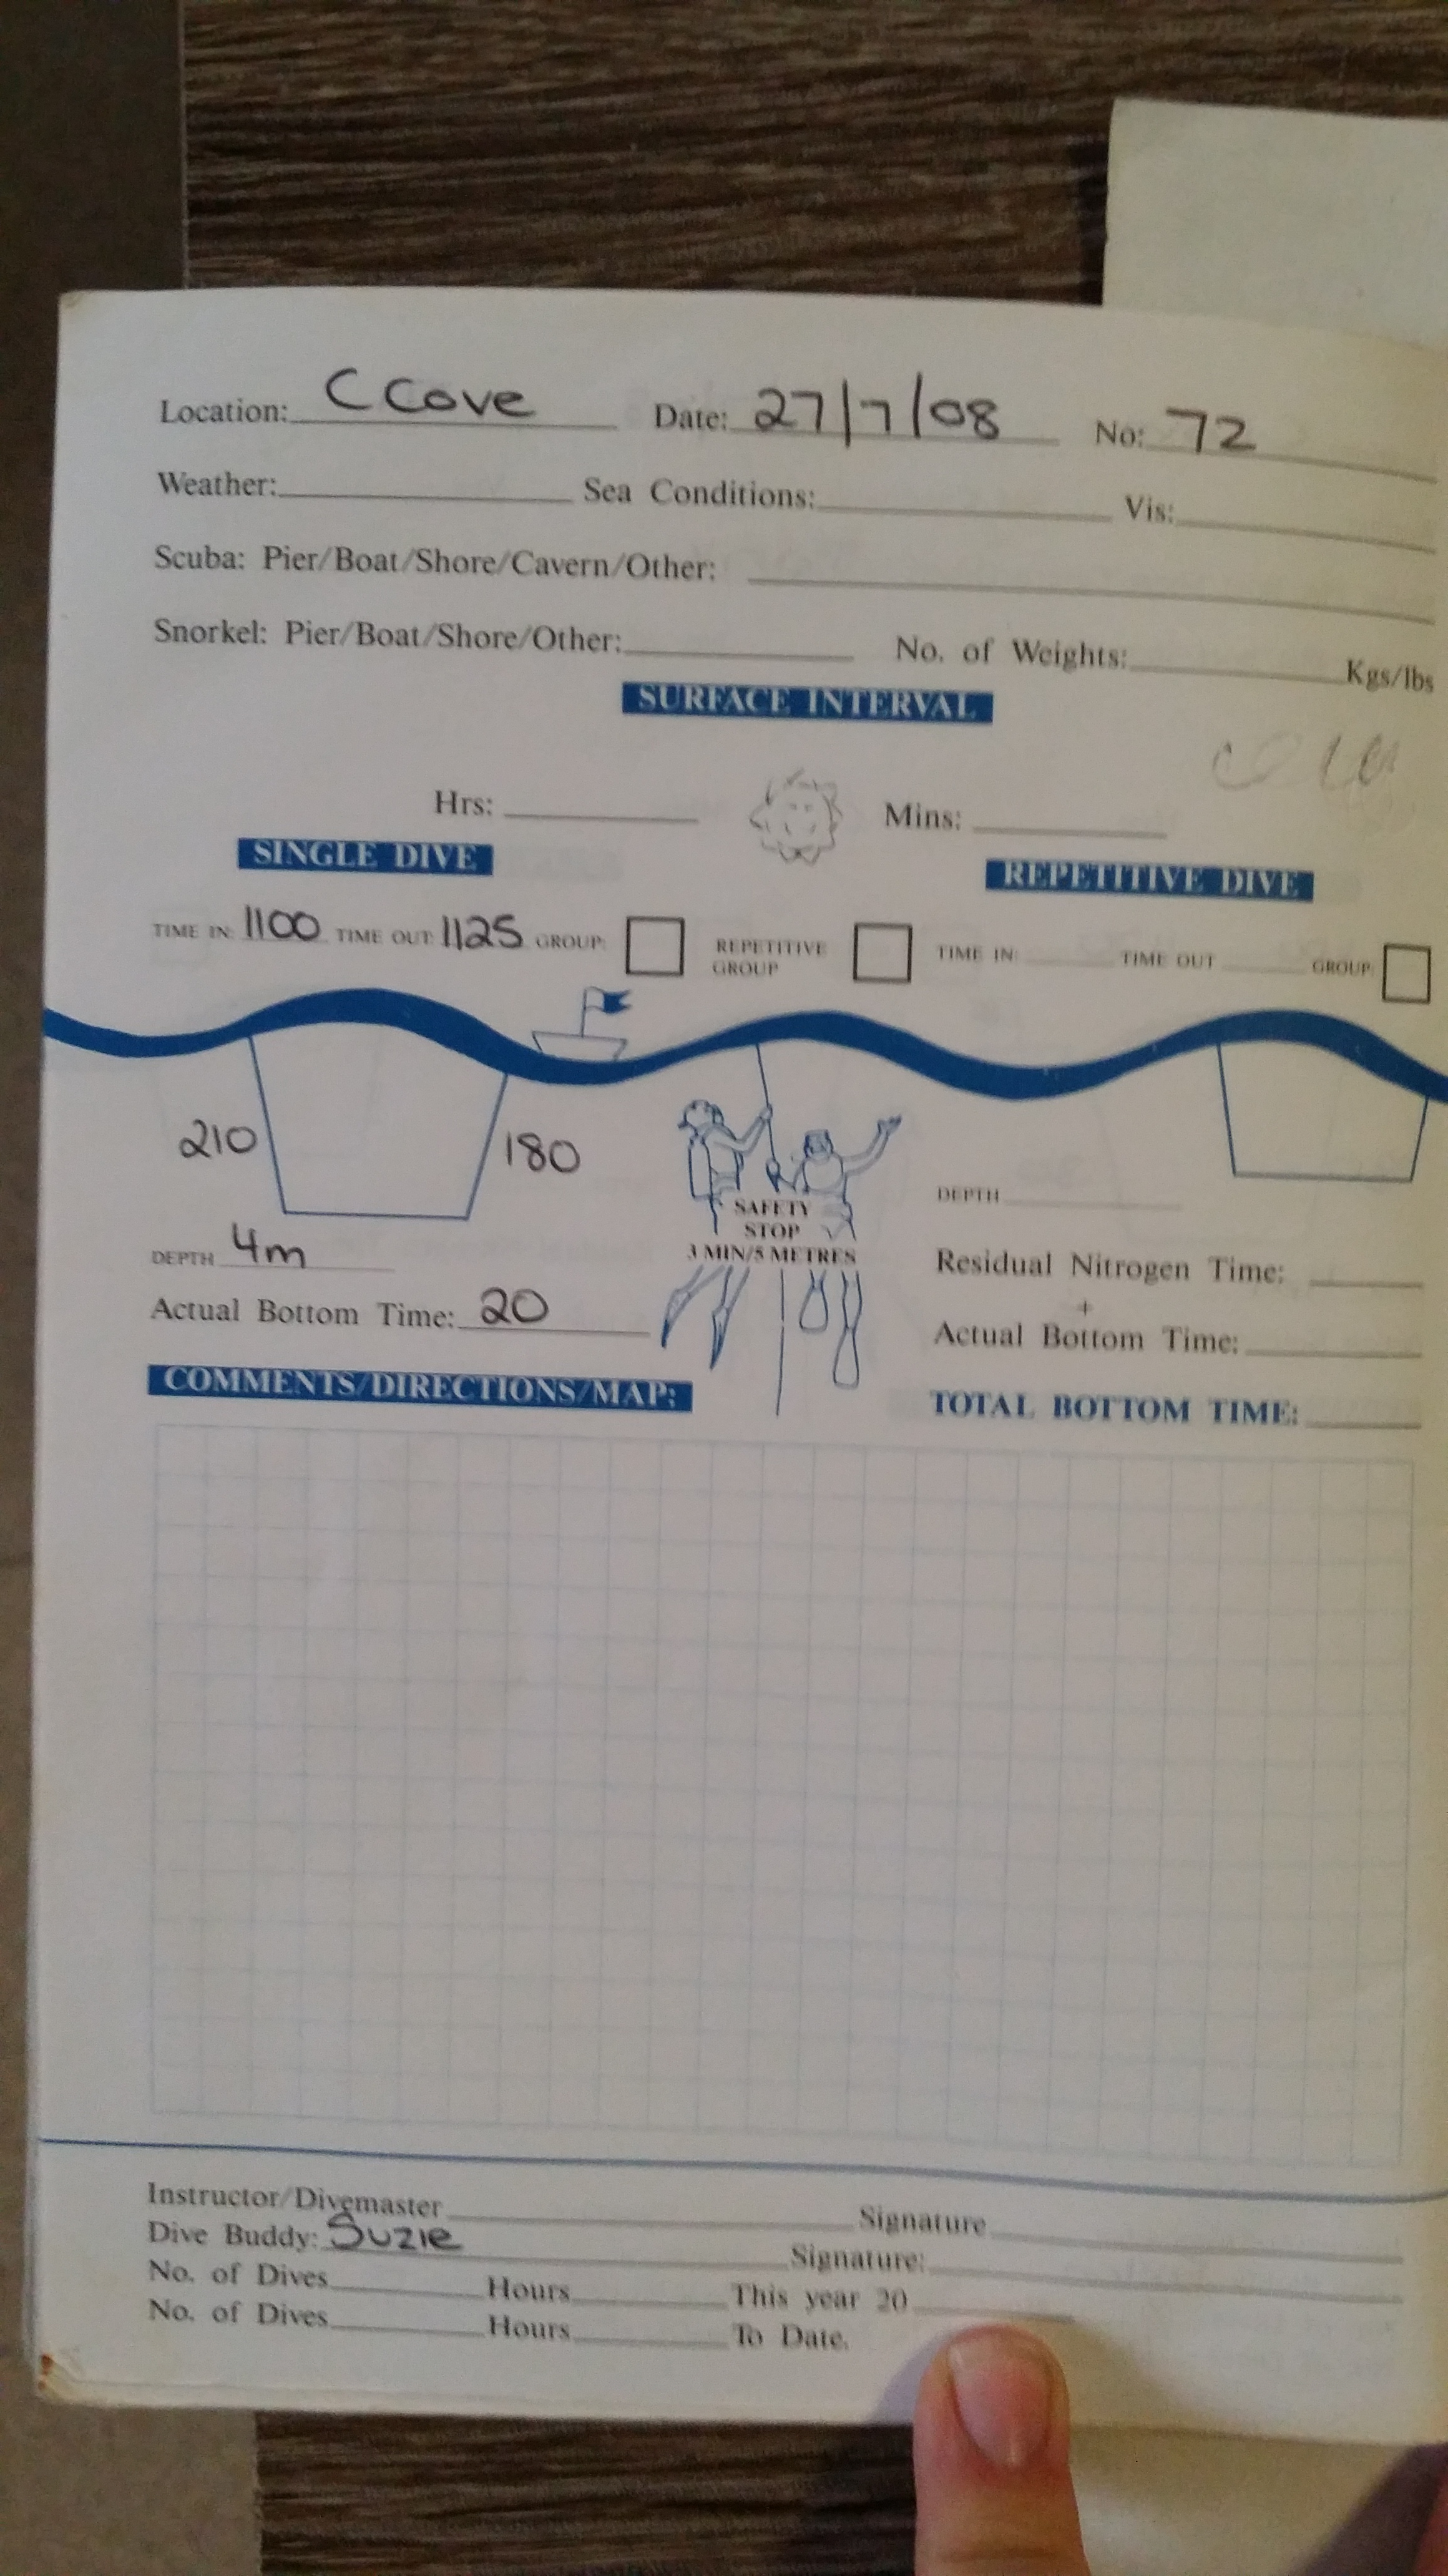 Location: C Cove Date: 27/7/08 No: 72
Weather: Sea Conditions: Vis:
Scuba: Pier/Boat/Shore/Cavern/Other:
Snorkel: Pier/Boat/Shore/Other: No. of Weights: Kgs/lbs
SURFACE INTERVAL
Hrs: Mins:
SINGLE DIVE
REPETITIVE DIVE
TIME IN: 1100 TIME OUT: 1125 GROUP: REPETITIVE GROUP TIME IN: TIME OUT GROUP:
210 180
SAFETY
STOP
3 MIN/5 METRES
DEPTH 4m
Actual Bottom Time: 20
DEPTH
Residual Nitrogen Time:
+
Actual Bottom Time:
TOTAL BOTTOM TIME:
COMMENTS/DIRECTIONS/MAP:
Instructor/Divemaster Signature
Dive Buddy: Suzie Signature:
No. of Dives Hours This year 20
No. of Dives Hours To Date.